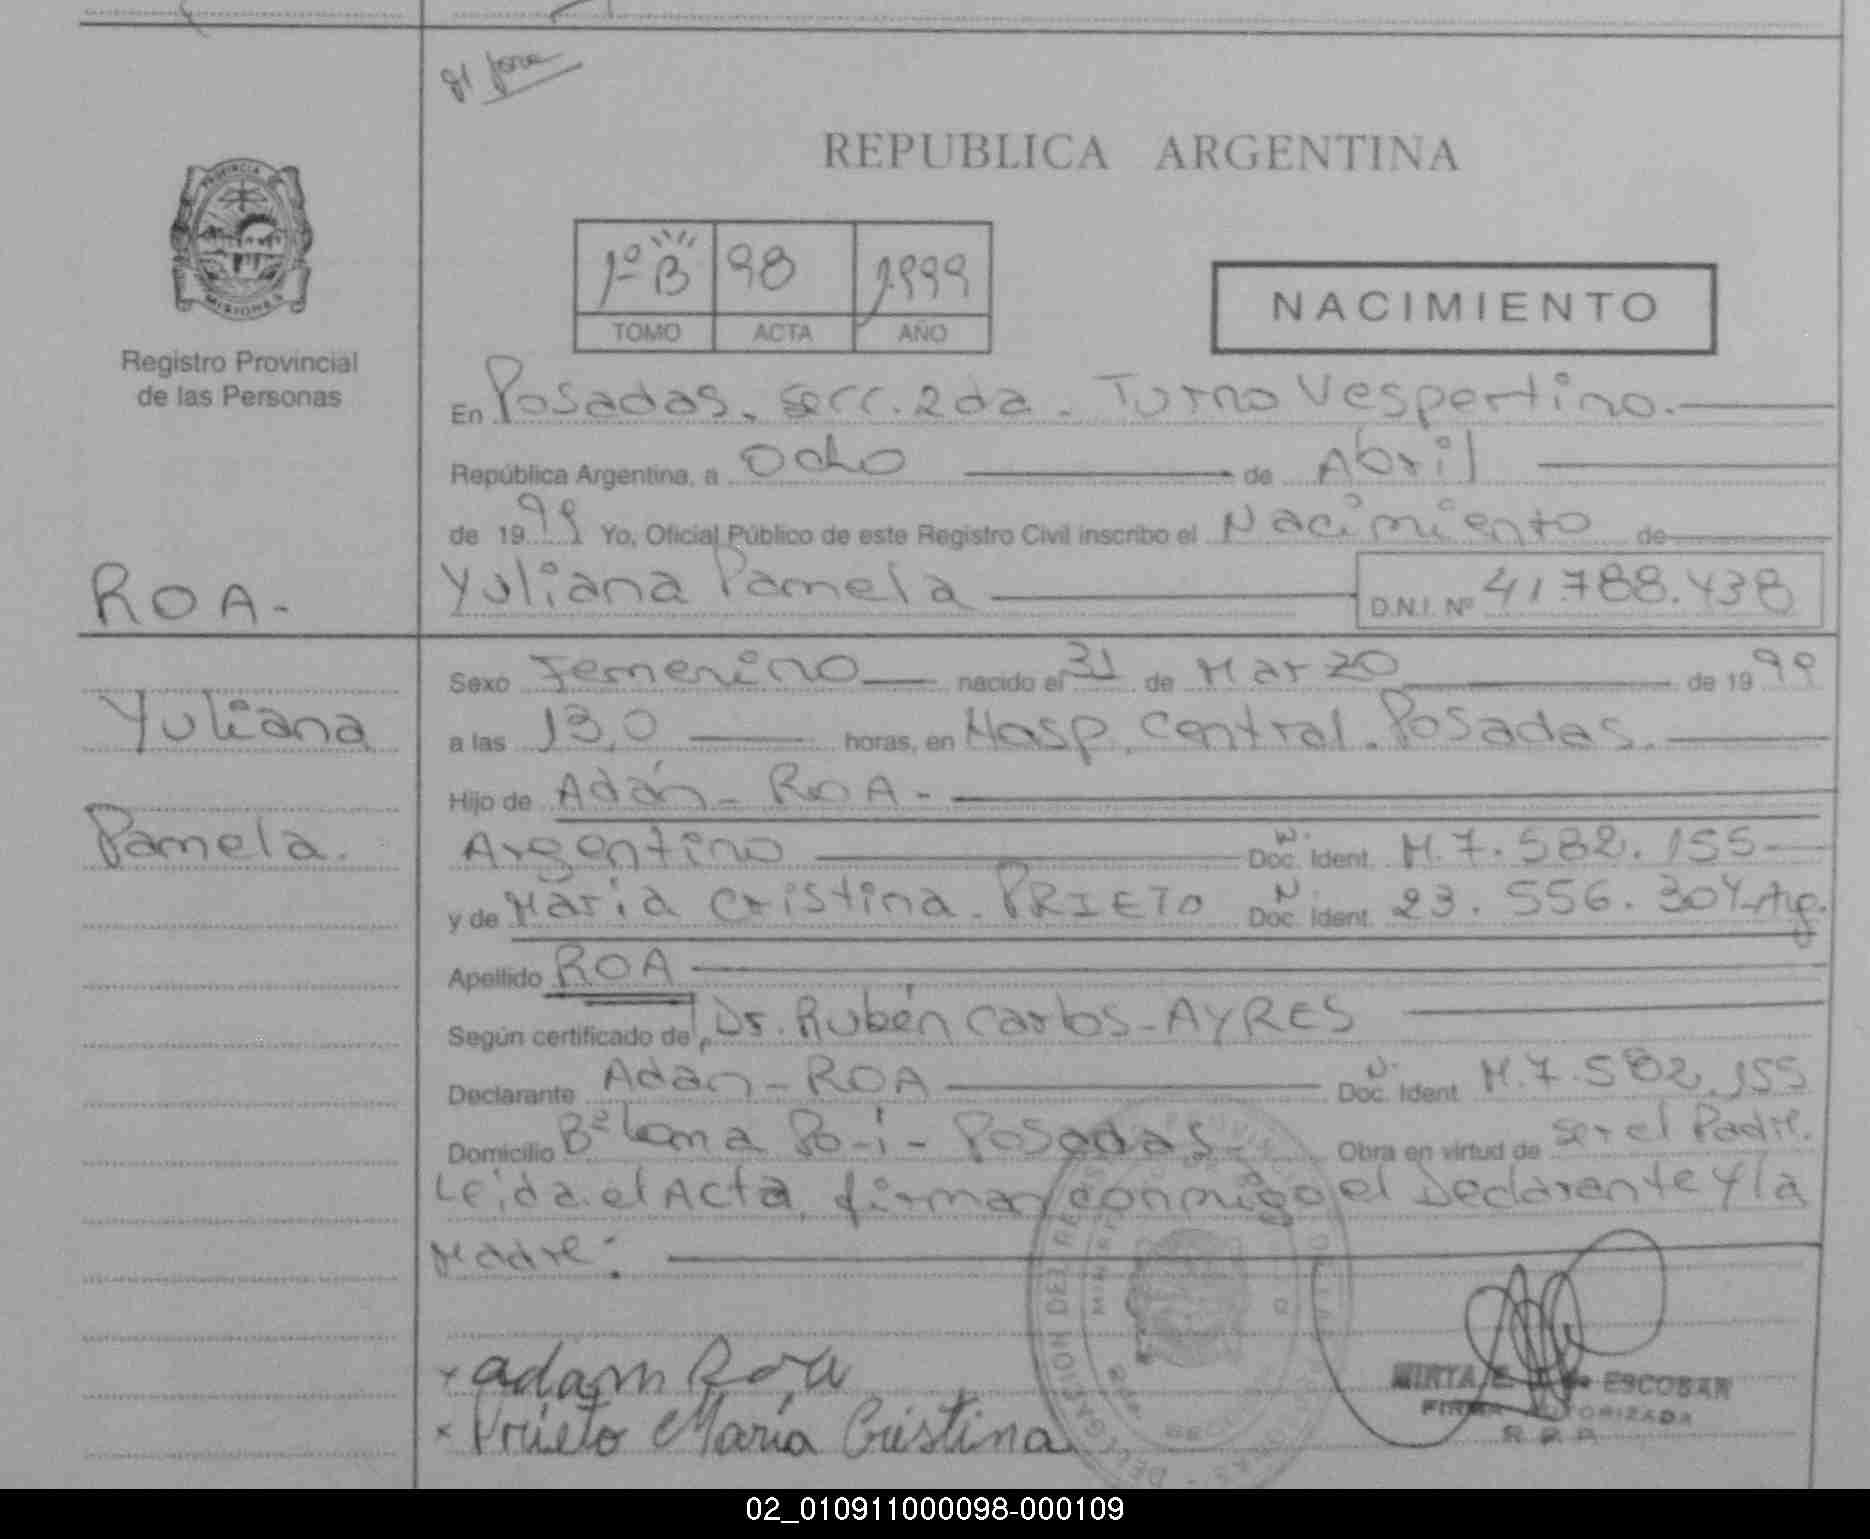 REPUBLICA ARGENTINA
PROVINCIA
MISIONES
Registro Provincial
de las Personas
1º B 98 1.999
TOMO ACTA AÑO
NACIMIENTO
En Posadas, secc. 2da. Turno Vespertino.
República Argentina, a ocho de Abril
de 1999 Yo, Oficial Público de este Registro Civil inscribo el Nacimiento de
ROA- Yuliana Pamela D.N.I. Nº 41788.438
Sexo Femenino nacido el 31 de Marzo de 1999
Yuliana a las 13,0 horas, en Hosp. Central. Posadas.
Hijo de Adán - ROA -
Pamela. Argentino Doc. Ident. M. 7.582.155
y de María Cristina. PRIETO Doc. Ident. 23.556.304 Arg.
Apellido ROA
Según certificado de Dr. Rubén Carlos - AYRES
Declarante Adán - ROA Doc. Ident M.7.582.155
Domicilio Bº Loma Po-i - Posadas - Obra en virtud de ser el Padre.
Leida el Acta, firman conmigo el Declarante y la
Madre:
x adam Roa
x Prieto María Cristina
MIRTA E. ESCOBAR
FIRMA AUTORIZADA
R. P. P.
02_010911000098-000109